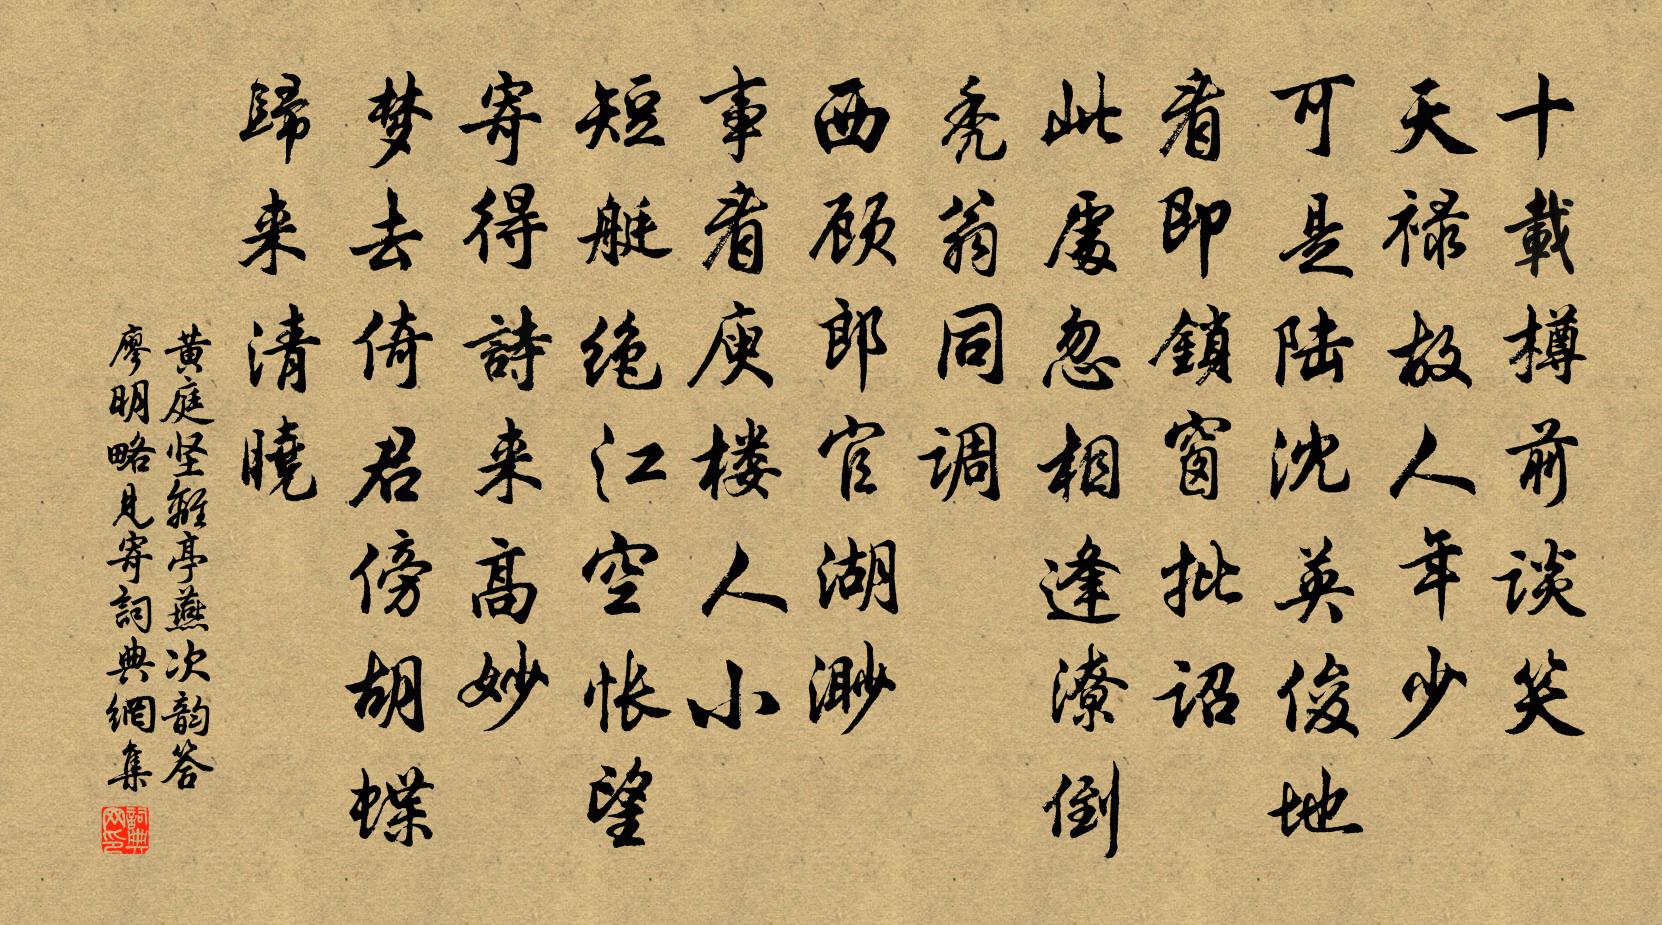 十載樽前谈笑
天禄故人年少
可是陆沈英俊地
看即鎖窗批诏
此處忽相逢潦倒
秃翁同调
西顾郎官湖渺
事看庾楼人小
短艇绝江空怅望
寄得詩来高妙
梦去倚君傍胡蝶
歸来清曉
黄庭坚離亭燕次韵答
廖明略见寄詞典網集
詞典网印